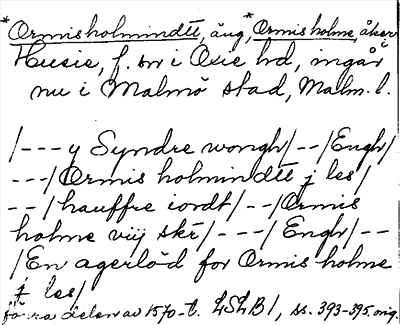 *Ormisholmindtt, äng, *Ormis holme, åker
Husie, f. sn i Oxie hd, ingår
nu i Malmö stad, Malm. l.
/--- y Syndre wongh/--/Engh/
---/Ormis holmindtt j les/
--/hauffre iordt/--/Ormis
holme viij skr/---/Engh/--
/En agerlöd for Ormis holme
j les/
förra delen av 1570-t. LSLB1, ss. 393-395, orig.